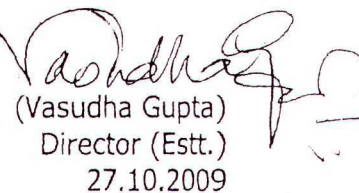 Vasudha
(Vasudha Gupta)
Director (Estt.)
27.10.2009